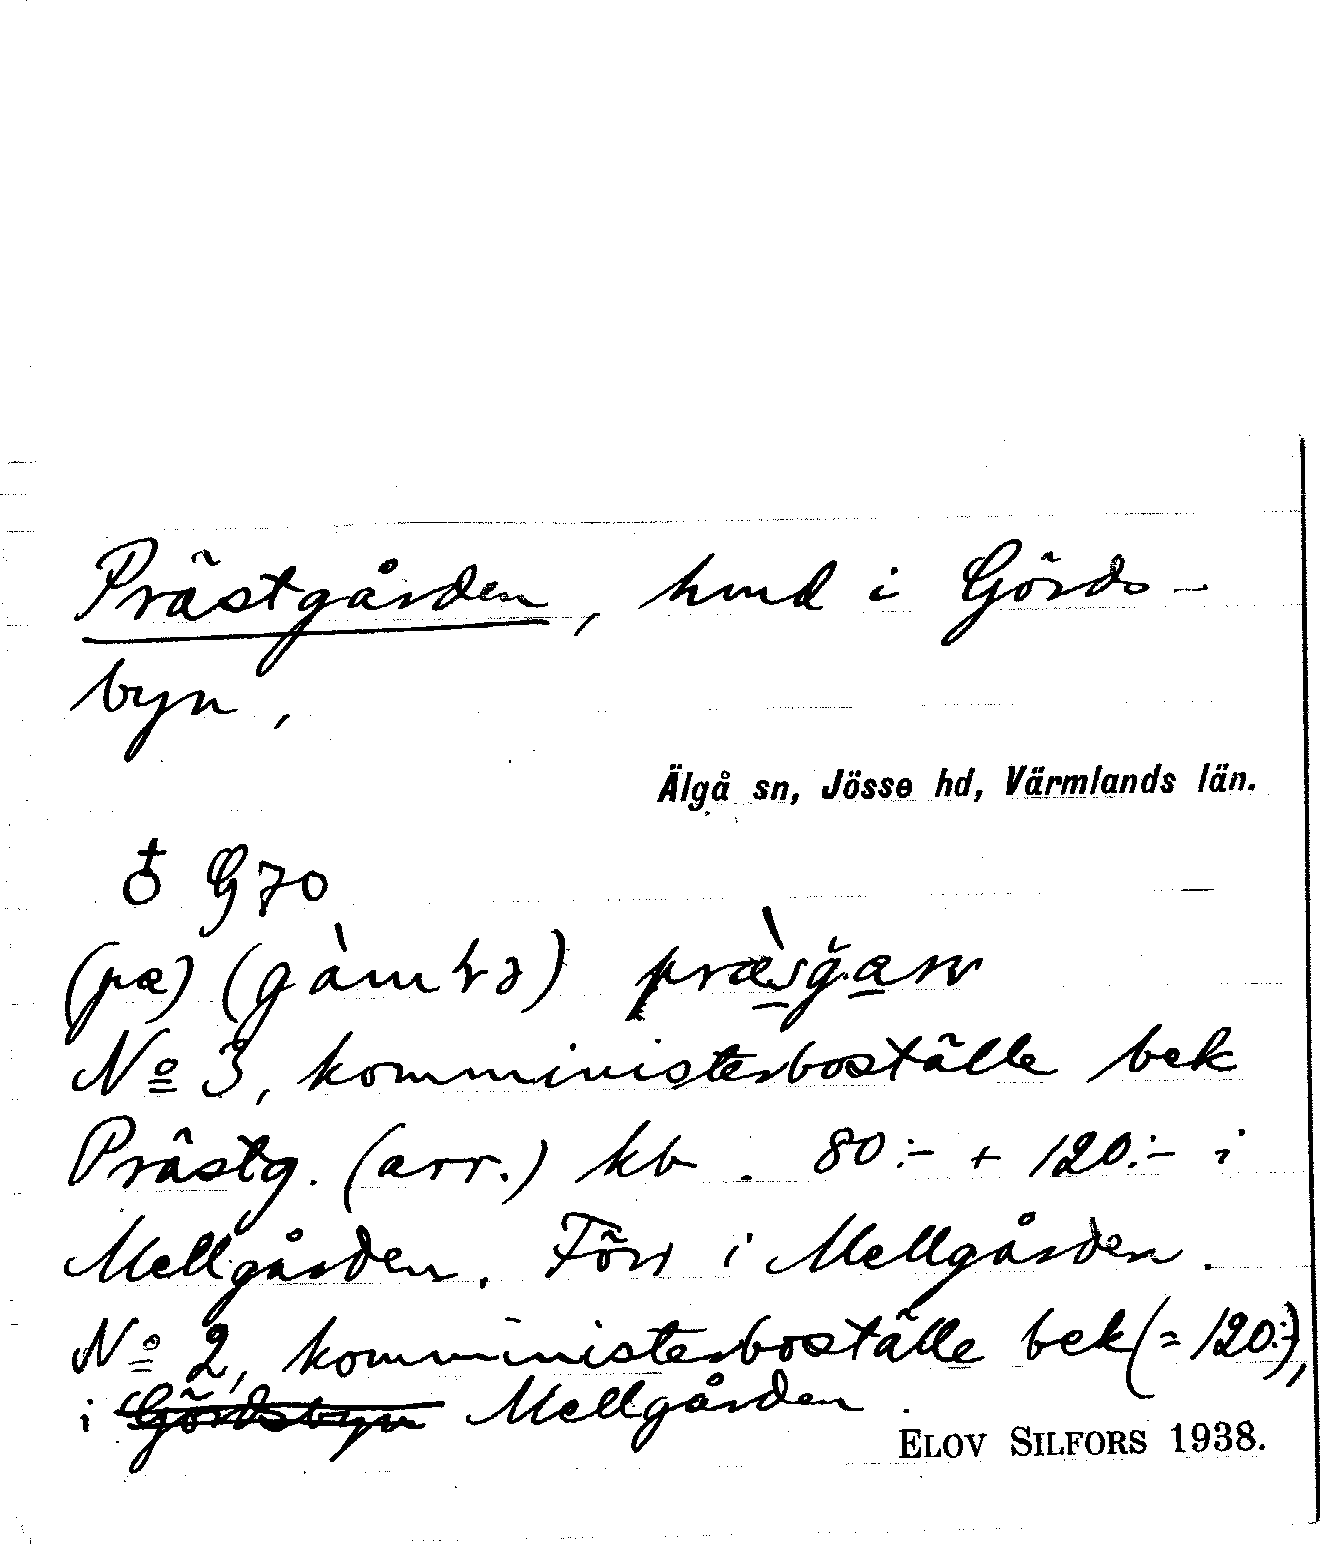 Prästgården, hmd i Görds-
byn,
Älgå sn, Jösse hd, Värmlands län.
♁ G70
(pæ)
No 3, komministerboställe bek
Prästg. (arr.) kb. 80:- + 120:- i
Mellgården. Förr i Mellgården.
No 2, komministerboställe bek (= 120:-),
i Gördsbyn Mellgården.
ELOV SILFORS 1938.